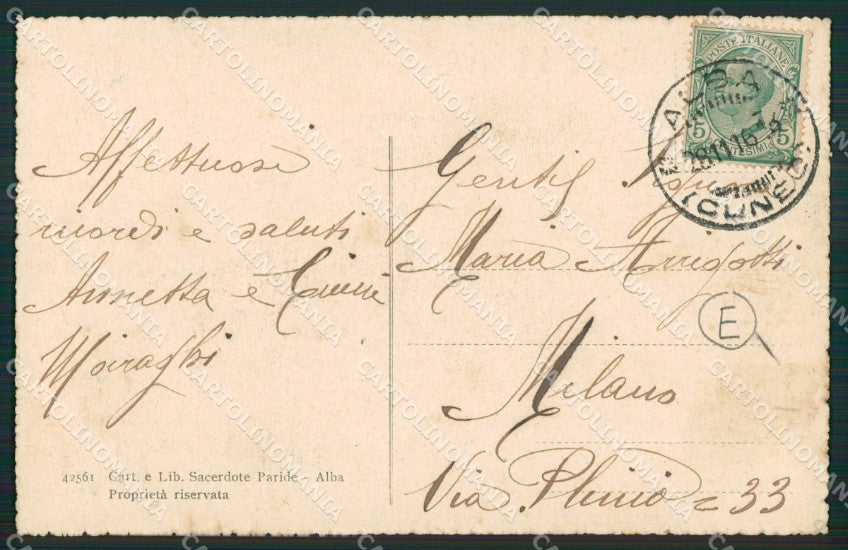 Affettuosi
ricordi e saluti
Annetta e
Moiraghi
42561 Cart. e Lib. Sacerdote Paride - Alba
Proprietà riservata
POSTE ITALIANE
5 5
ALBA
28.11.16
(CUNEO)
Gentil
Maria Arrigotti
Milano
Via Plinio = 33
E
CARTOLINOMANIA